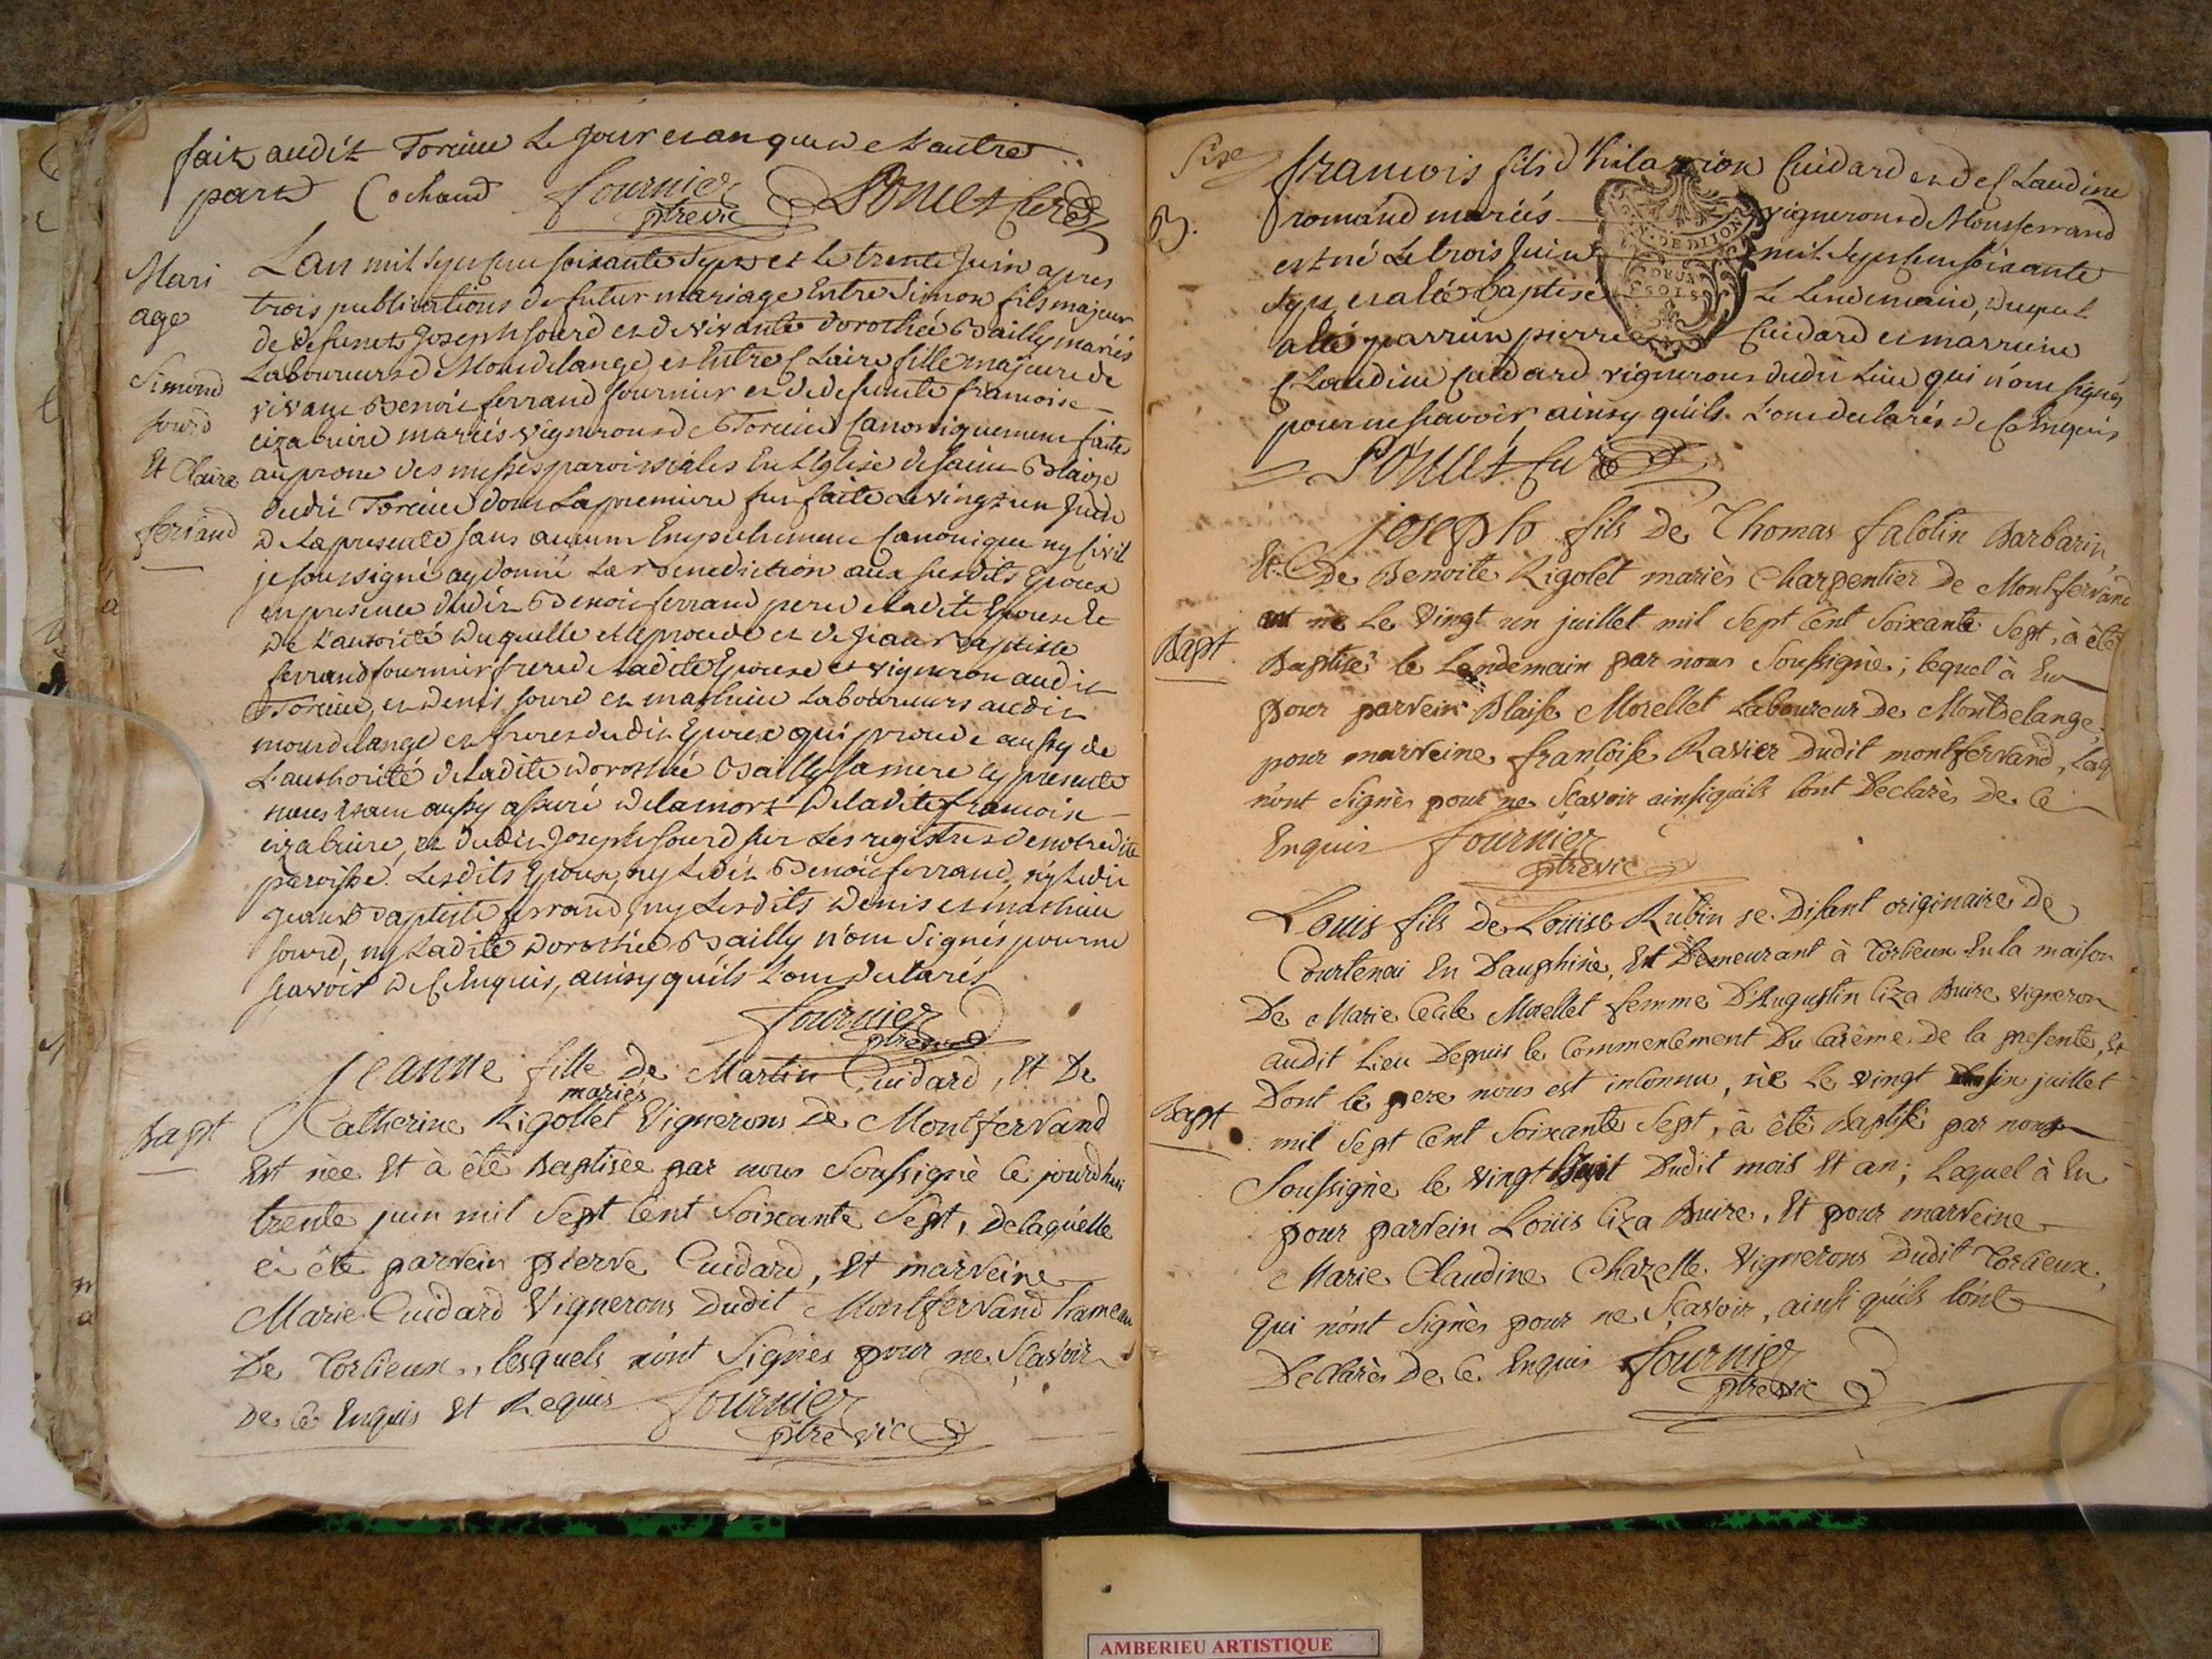 fait audit Torcieu Le jour et an que de L'autre
part Cochaud fournier
ptre vic Poncet Curé
Mari
age
Simond
sourd
Et Claire
ferrand
L'an mil sept cent soixante sept et le trente Juin apres
trois publications de futur mariage Entre Simon fils majeur
de defunct Joseph sourd et de vivante dorothée Bailly mariés
Laboureurs de Montdelange, et Entre Claire fille majeure de
vivant Benoit ferrand fournier et de defunte francoise
cizabuire mariés vignerons de Torcieu Canoniquement faites
au prone des messes paroissiales En L'Eglise de saint Blaise
dudit Torcieu dont La premiere fut faite Le vingt un Juin
de La presente sans aucun Empechement Canonique ny Civil
je soussigné ay donné La Benediction aux susdits Epoux
en presence dudit Benoit ferrand pere de Ladite Epouse Et
de L'autorité de quelle Elle procede et de Jean Baptiste
ferrand fournier frere de Ladite Epouse et vigneron audit
Torcieu, et denis sourd et mathieu Laboureurs audit
montdelange et freres dudit Epoux qui procede aussy de
L'authorité de Ladite dorothée Bailly sa mere Cy presente
nous ayant aussy assuré de la mort de Ladite francoise
cizabuire, et dudit Joseph sourd sur Les registres de notredite
paroisse. Lesdits Epoux, ny Ledit Benoit ferrand, ny Ledit
Jean Baptiste ferrand, ny Lesdits Denis et mathieu
sourd, ny Ladite dorothée Bailly n'ont signés pour ne
scavoir de Ce Enquis, ainsy qu'ils L'ont declarés
fournier
ptre vic
Jeanne fille de Martin Cuidard, Et De
mariés
Bapt Catherine Rigollet Vignerons De Montferrand
Est née Et à été Baptisée par nous Soussigné Ce jourdhui
trente juin mil Sept Cent Soixante Sept, de laquelle
à été parrein pierre Cuidard, Et marreine
Marie Cuidard Vignerons Dudit Montferrand hameau
De Torcieux, lesquels n'ont Signés pour ne Scavoir
De Ce Enquis Et Requis fournier
ptre vic
francois fils d'hilarion Cuidard et de Claudine
B. romand mariés vignerons de Montferrand
est né Le trois Juin mil sept cent soixante
sept et a été baptisé Le Lendemain, duquel
a été parrein pierre Cuidard et marreine
Claudine Cuidard vignerons dudit Lieu qui n'ont signés
pour ne scavoir ainsy qu'ils L'ont declarés de Ce Enquis
Poncet Curé
joseph fils De Thomas falolin Barbarin,
Et De Benoite Rigolet mariés Charpentier De Montferrand
est né Le Vingt un juillet mil Sept Cent Soixante Sept, à été
Bapt
Baptisé le Lendemain par nous Soussigné; lequel à Eu
pour parrein Blaise Morellet Laboureur De Montdelange,
pour marreine françoise Ravier Dudit montferrand,
n'ont Signés pour ne Scavoir ainsi qu'ils l'ont Declarés De Ce
Enquis fournier
ptre vic
Louis fils de Louise Rubin se Disant originaire De
Courtenai En Dauphiné, Et Demeurant à Torcieux En la maison
De Marie Cecile Morellet femme D'Augustin Ciza Buire Vigneron
audit Lieu Depuis le Commencement Du Carême De la presente, Et
Dont le pere nous est inconnu, né Le Vingt juillet
Bapt
mil Sept Cent Soixante Sept, à été Baptisé par nous
Soussigné le Vingt huit Dudit mois Et an; Lequel à Eu
pour parrein Louis Ciza Buire, Et pour marreine
Marie Claudine Chazelle Vignerons Dudit Torcieux,
Qui n'ont Signés pour ne Scavoir, ainsi qu'ils l'ont
Declarés De Ce Enquis fournier
ptre vic
AMBERIEU ARTISTIQUE